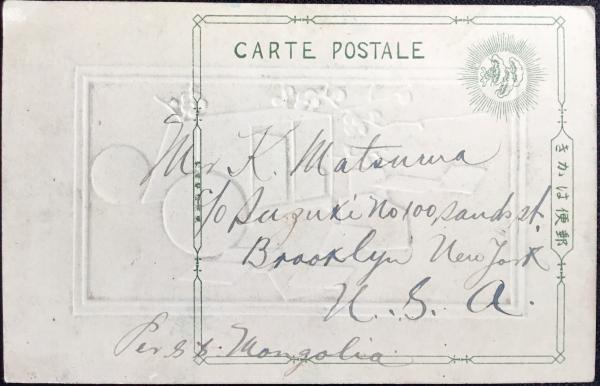 CARTE POSTALE
きかは便郵
Mr K. Matsuura
c/o Suzuki No 100, Sands st.
Brooklyn New York
U. S. A.
Per S.S. Mongolia